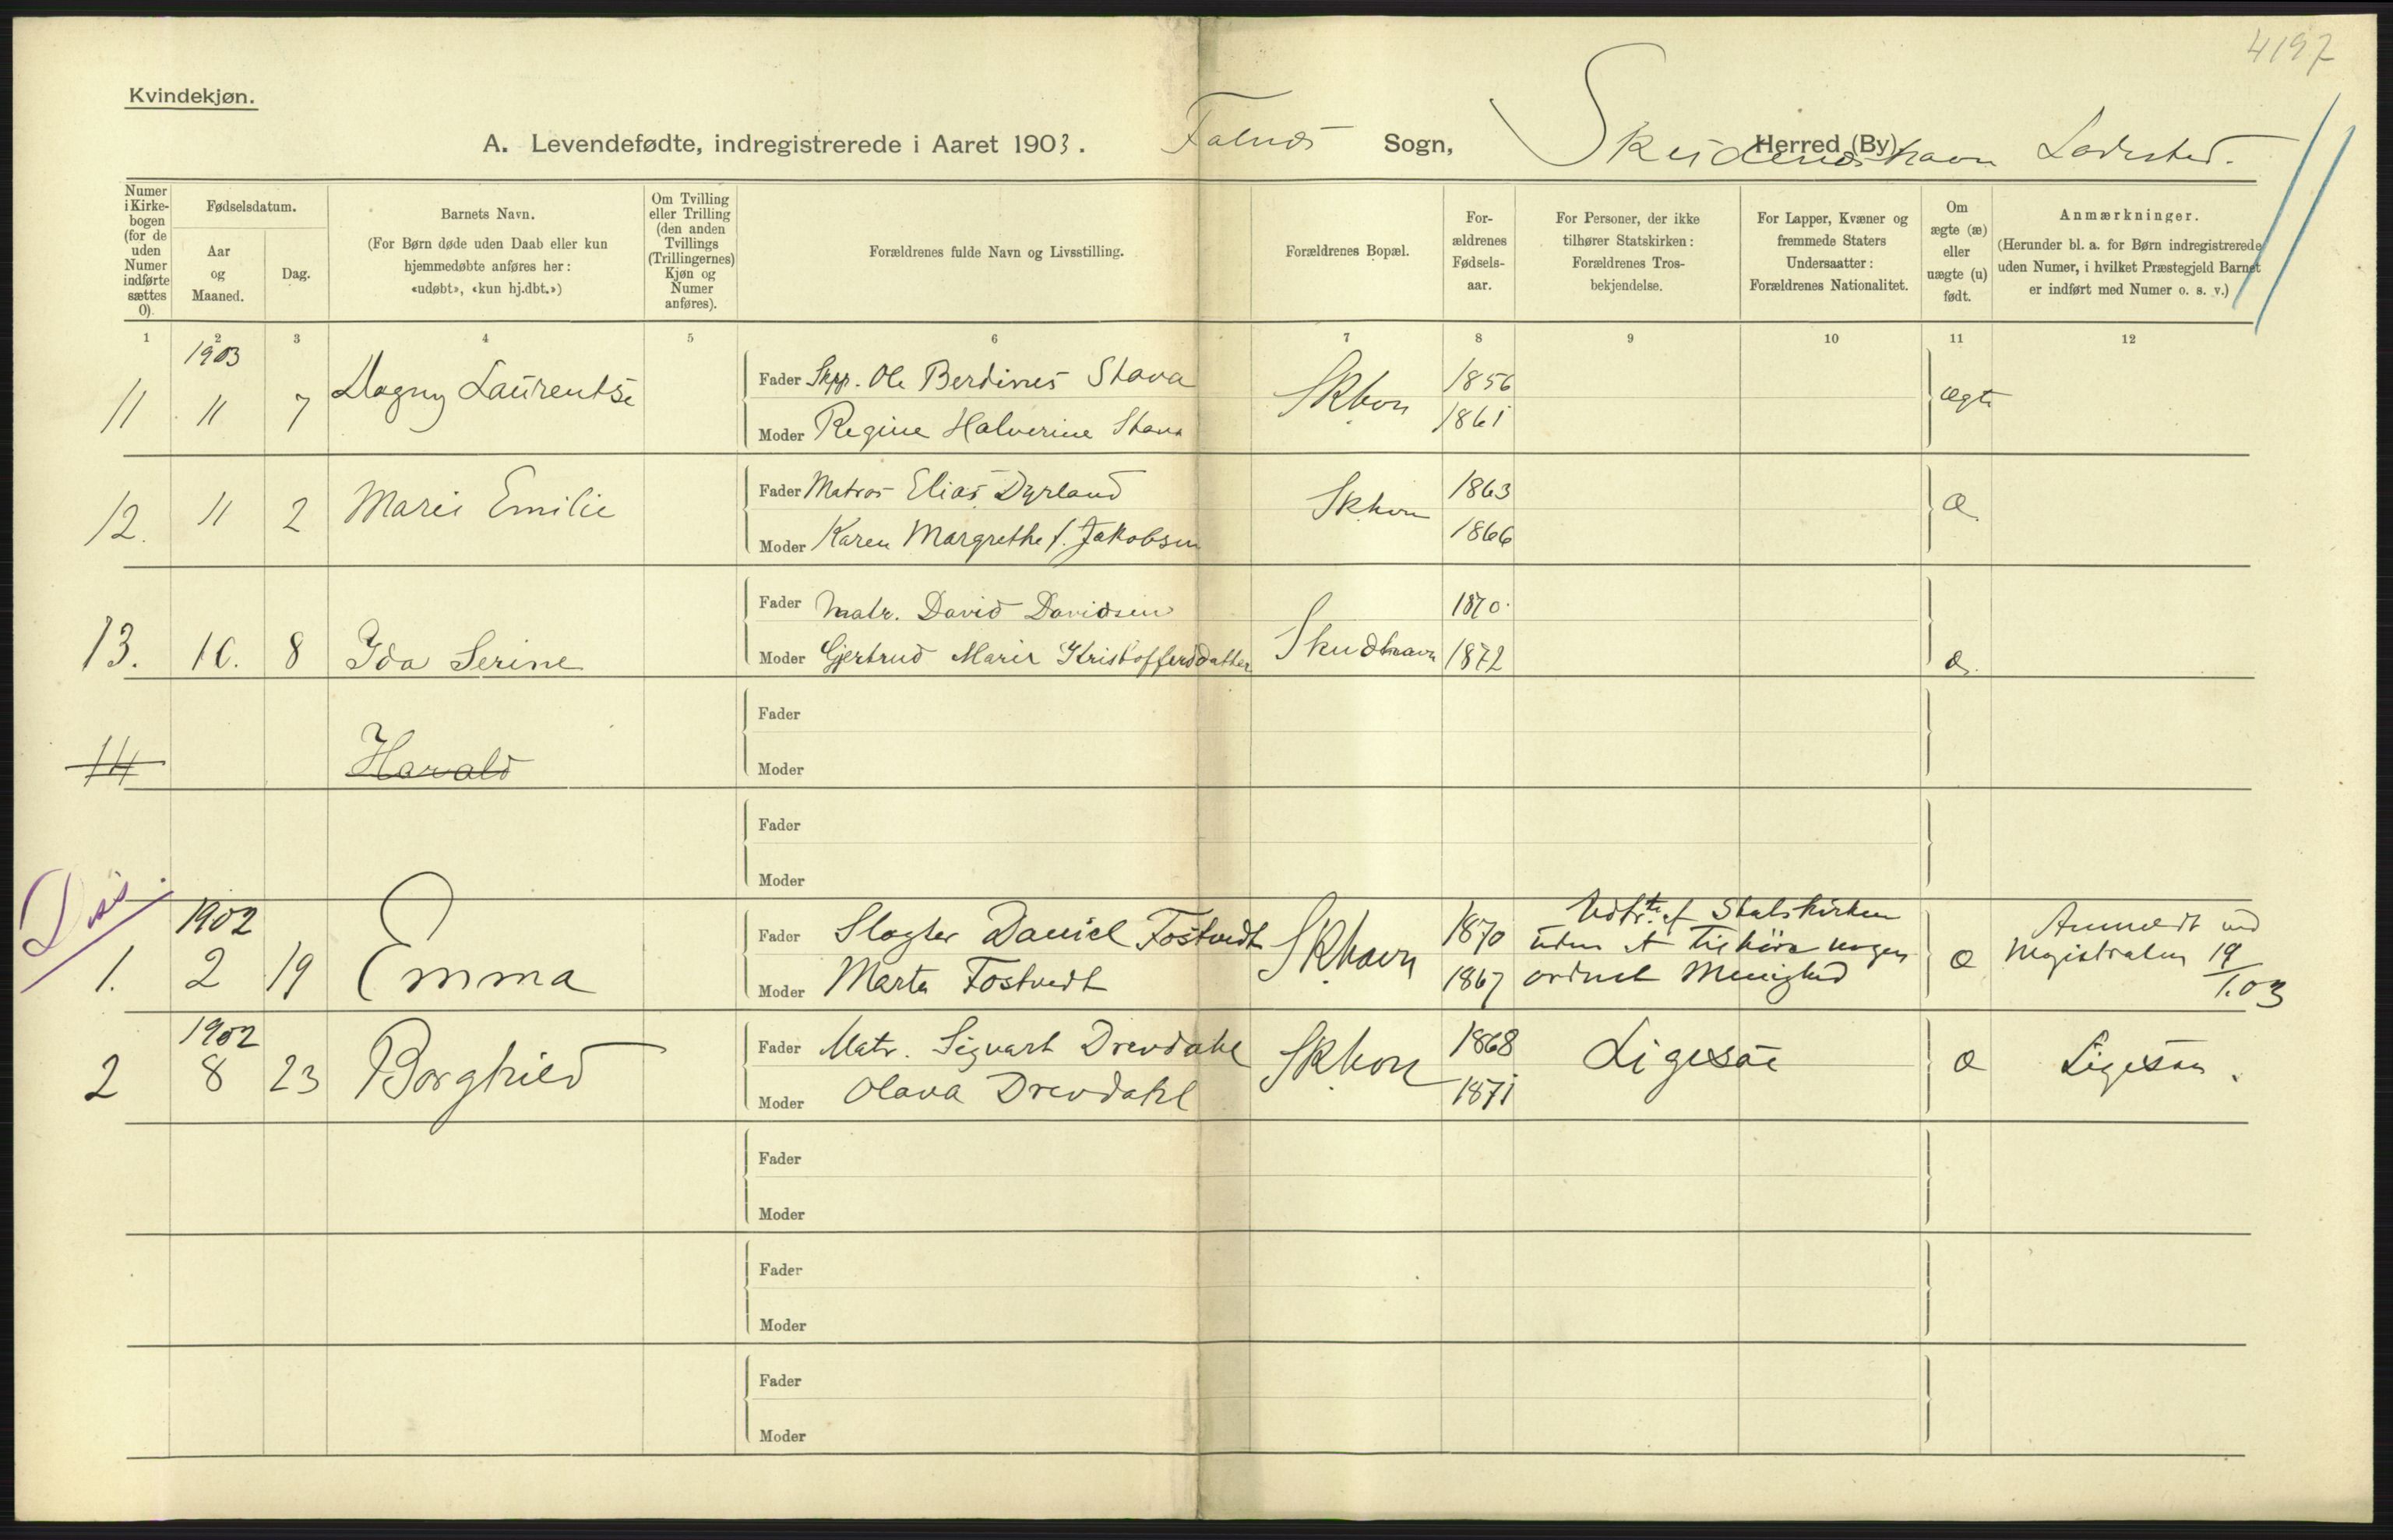 4197
Kvindekjøn.
A. Levendefødte, indregistrerede i Aaret 1903. Falnæs Sogn, Skudeneshavn Herred (By) Ladested.
Numer i Kirkebogen (for de uden Numer indførte sættes 0).
Fødselsdatum.
Aar og Maaned.
Dag.
Barnets Navn.
(For Børn døde uden Daab eller kun hjemmedøbte anføres her: «udøbt», «kun hj.dbt.»)
Om Tvilling eller Trilling (den anden Tvillings (Trillingernes) Kjøn og Numer anføres).
Forældrenes fulde Navn og Livsstilling.
Forældrenes Bopæl.
Forældrenes Fødselsaar.
For Personer, der ikke tilhører Statskirken: Forældrenes Trosbekjendelse.
For Lapper, Kvæner og fremmede Staters Undersaatter: Forældrenes Nationalitet.
Om ægte (æ) eller uægte (u) født.
Anmærkninger.
(Herunder bl. a. for Børn indregistrerede uden Numer, i hvilket Præstegjeld Barnet er indført med Numer o. s. v.)
1 2 3 4 5 6 7 8 9 10 11 12
1903
11 11 7 Dagny Laurentse Fader Skpr. Ole Berdines Stava Skhvn 1856 ægte
Moder Regine Halverine Stava 1861
12. 11 2 Marie Emilie Fader Matros Elias Dyrland Skhvn 1863 æ
Moder Karen Margrethe f. Jakobsen 1866
13. 10. 8 Ida Serine Fader Matr. David Davidsen Skudhavn 1870 æ.
Moder Gjertrud Marie Kristoffersdatter 1872
14 Harald Fader
Moder
Fader
Moder
Diss.
1902
1. 2 19 Emma Fader Slagter Daniel Fostvedt Skhavn 1870 Udtr. af Statskirken uden at tilhøre nogen ordnet Menighed æ Anmeldt ved Magistraten 19/1.03
Moder Marta Fostvedt 1867
1902
2 8 23 Borghild Fader Matr. Sigvart Drevdahl Skhvn 1868 Ligesaa æ Ligesaa.
Moder Olava Drevdahl 1871
Fader
Moder
Fader
Moder
Fader
Moder